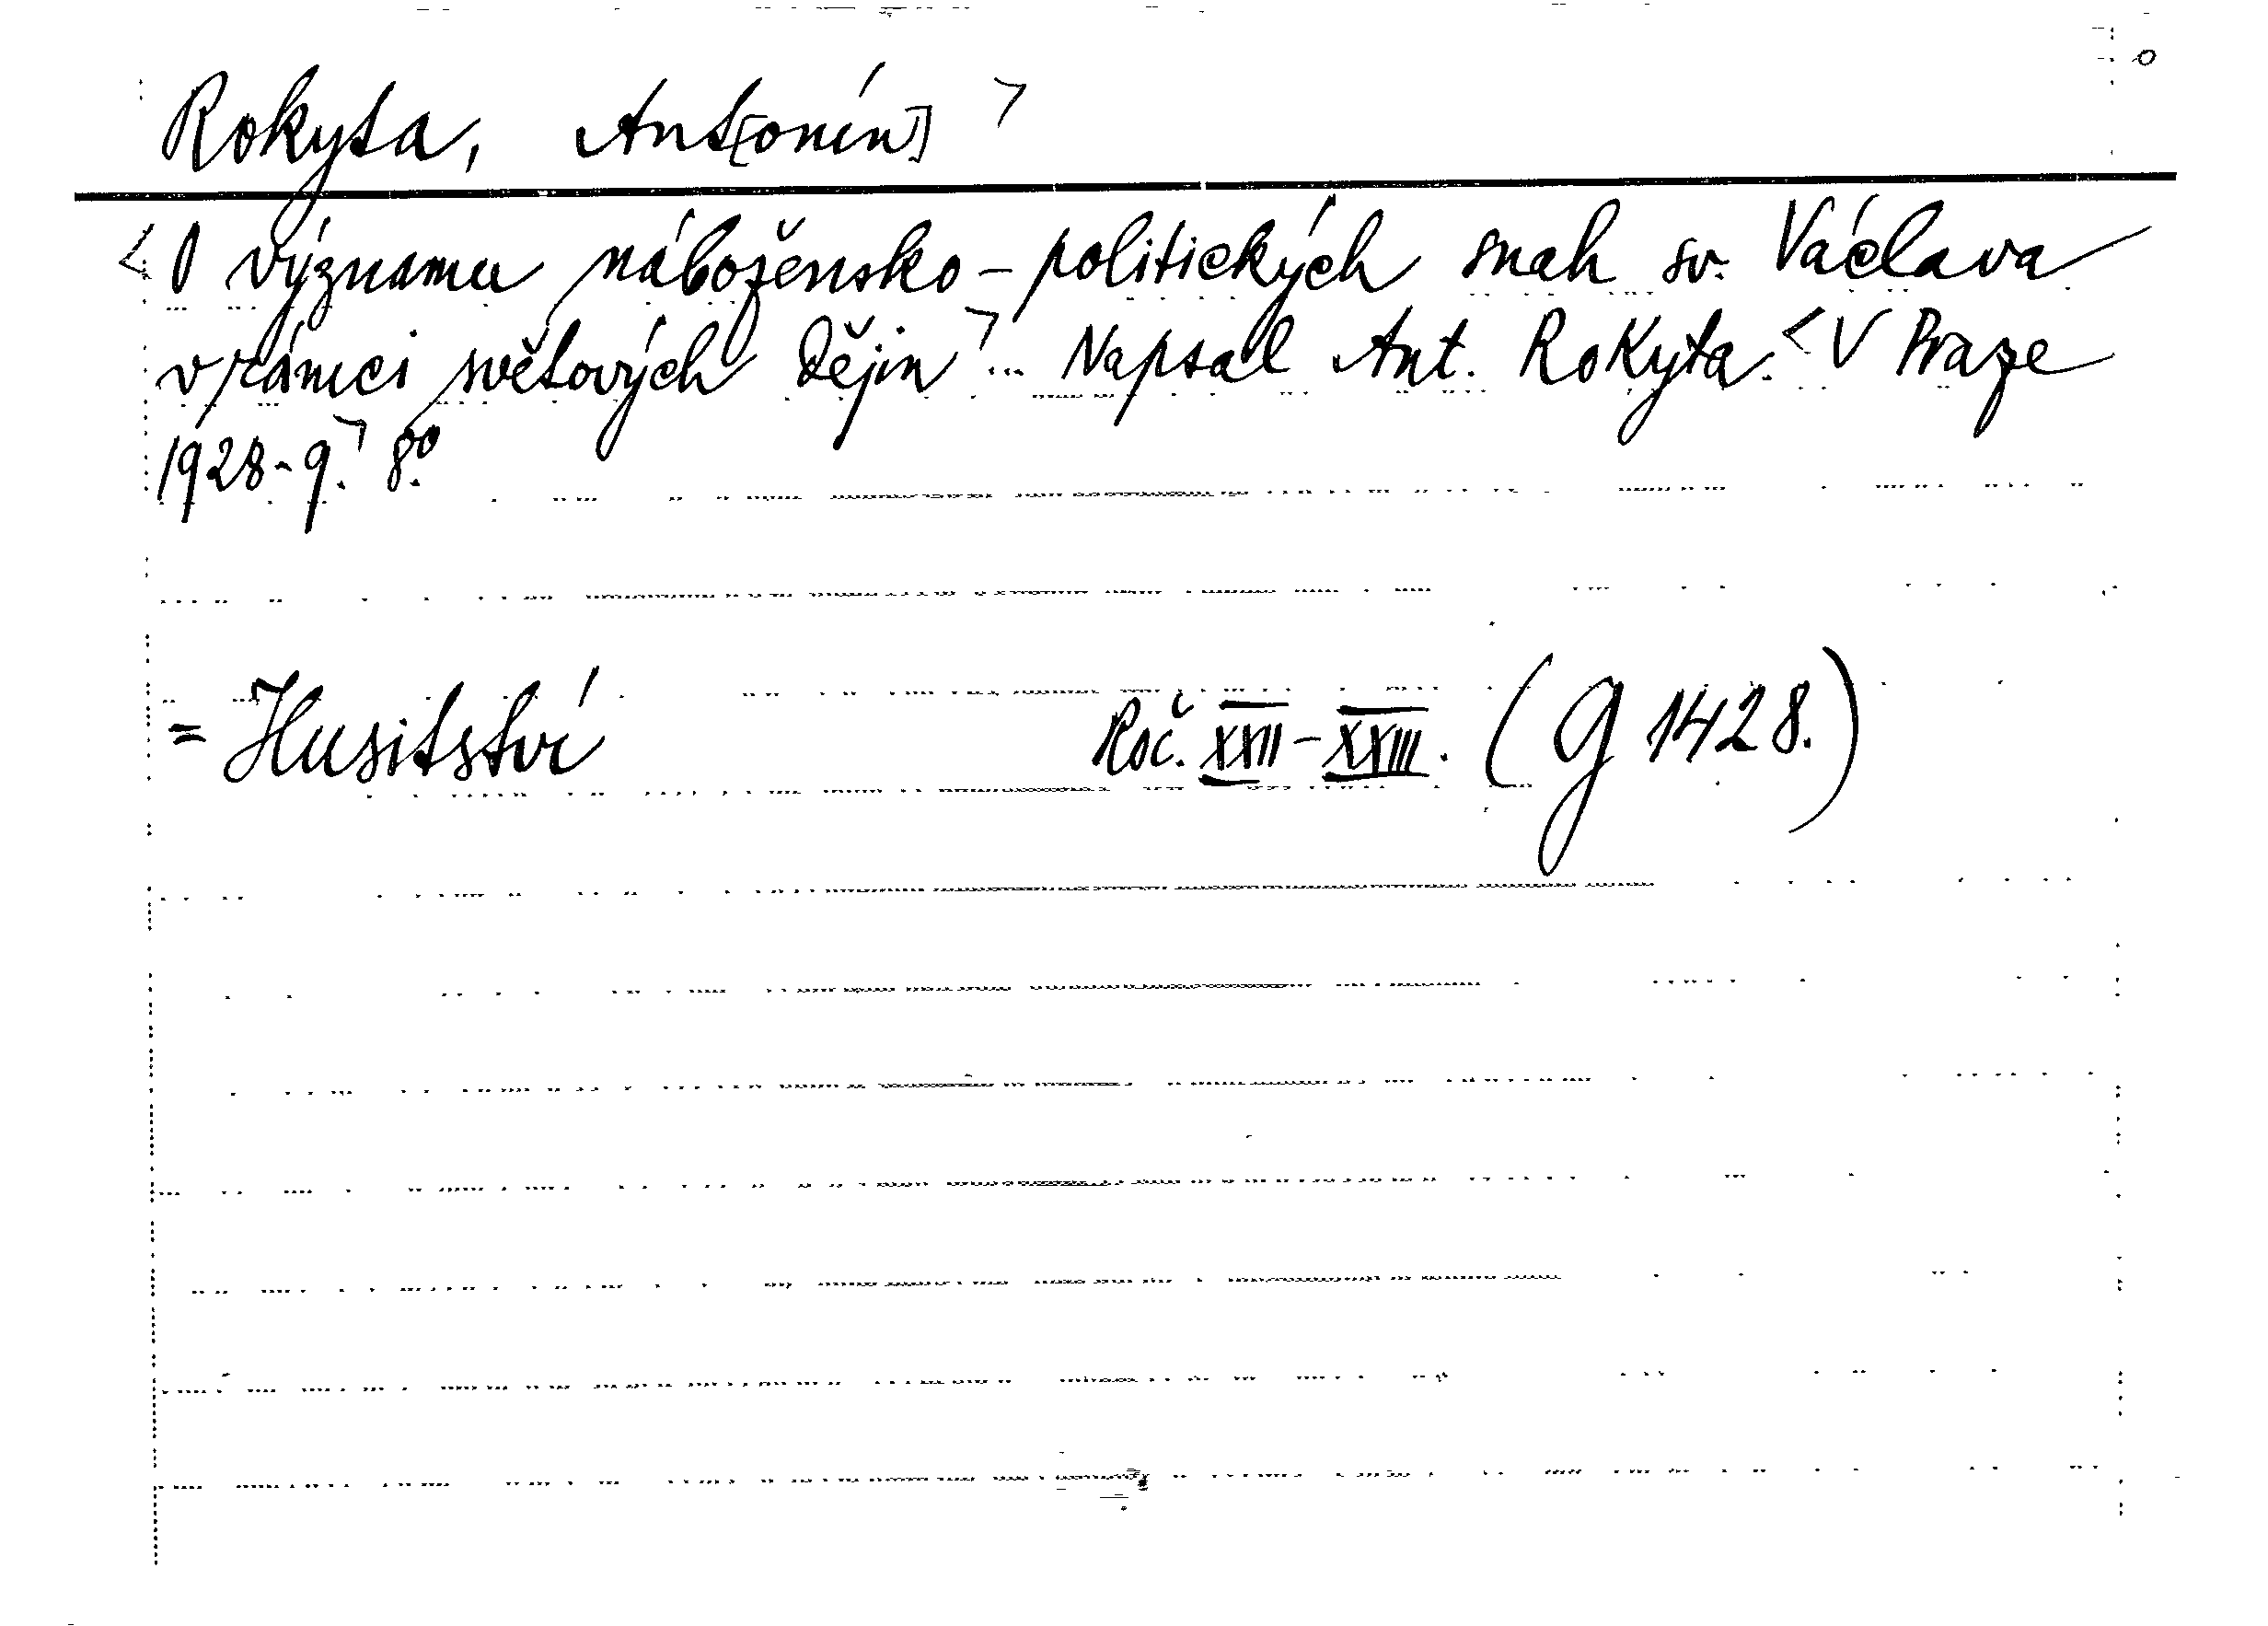 Rokyta, Ant[onín]
O významu nábožensko-politických snah sv. Václava
v rámci světových dějin ... Napsal Ant. Rokyta. V Praze
1928-9. 8º.
= Husitství Roč. XXII-XXIII. (g 1428.)